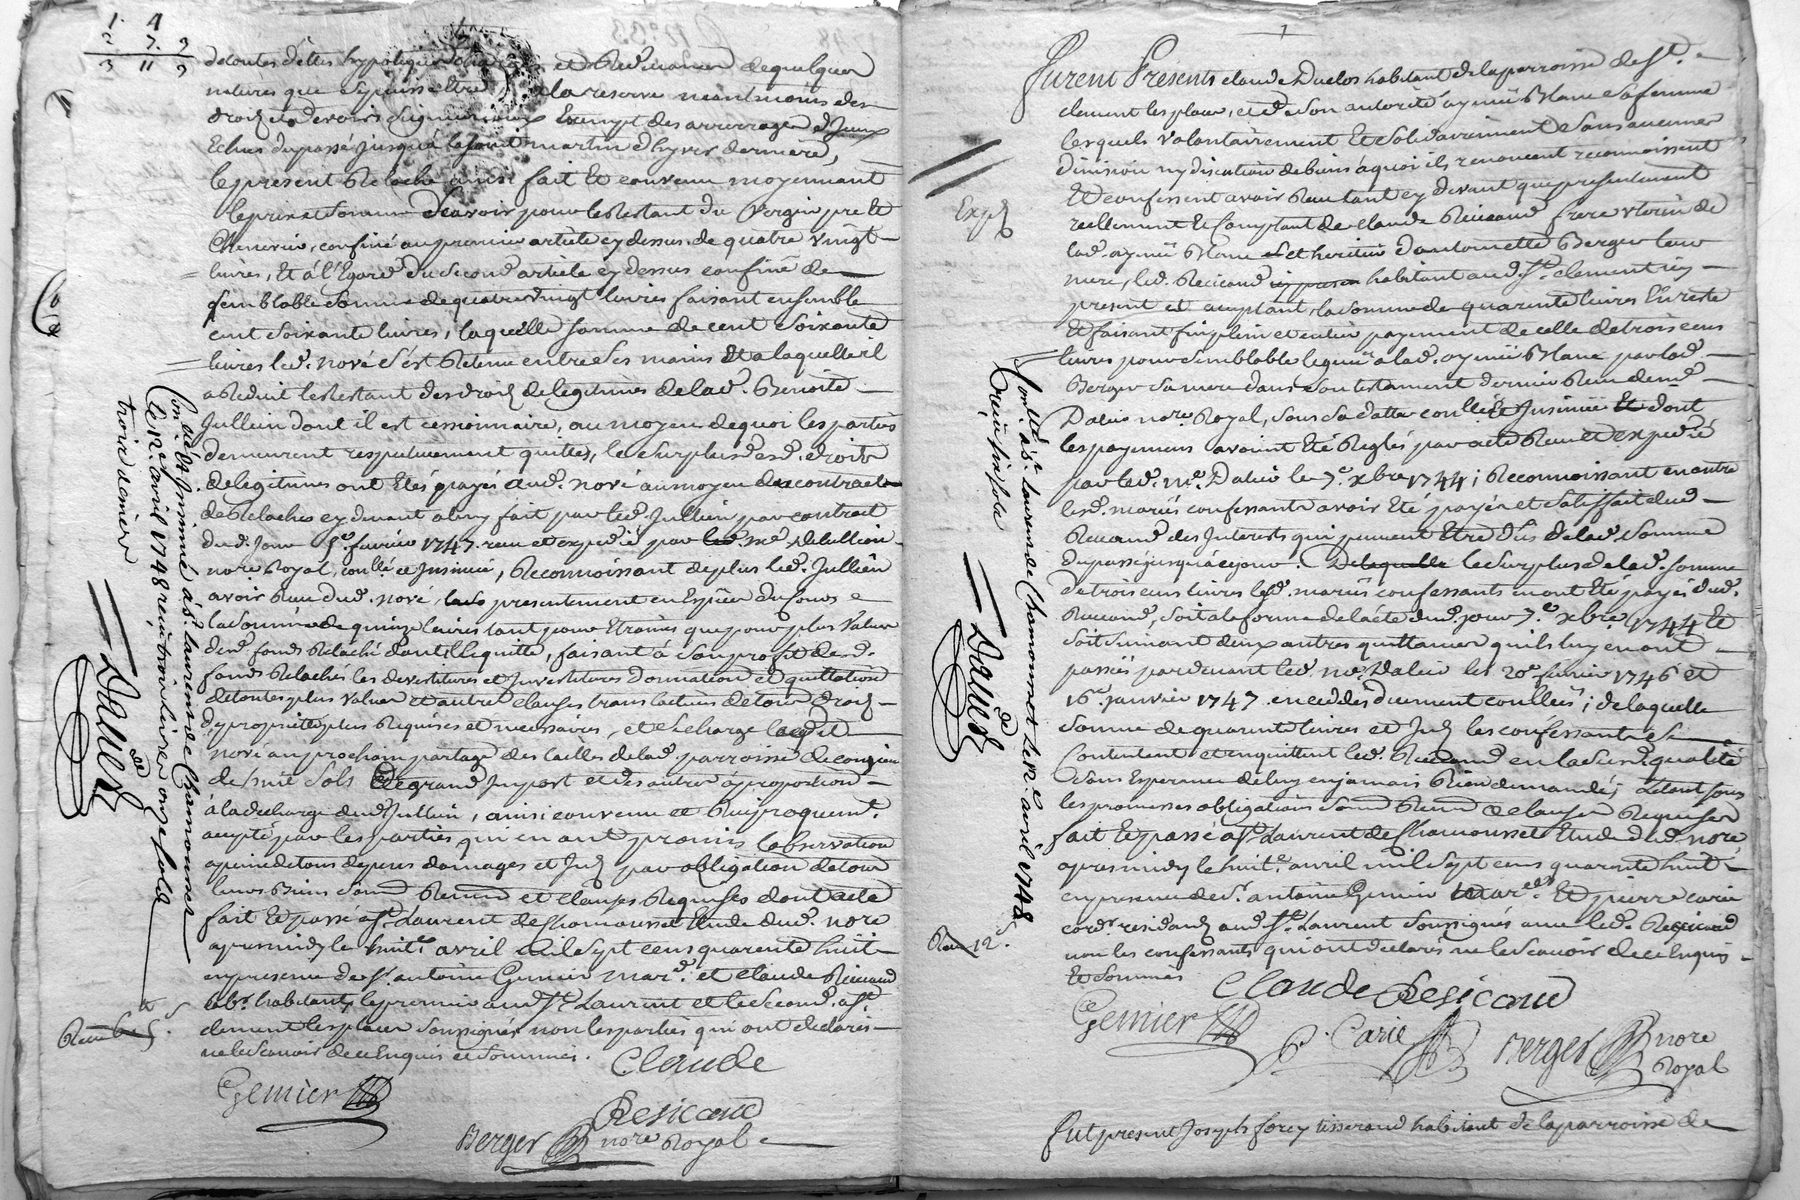 1. 4
2 7. 9
3 11 9
de toutes dettes hypoteques et de quelques
natures que ce puisse etre, a la reserve neantmoins des
droits et devoirs seigneuriaux Exempt des arrerages d'Iceux
Echus du passé jusqu'a la saint martin d'hyver derniere,
le present Relaché ainsi fait Et convenu moyennant
le prix et somme scavoir pour le Restant du Verger pré Et
Chenevier, confiné au premier article cy dessus, de quatre vingt
livres, Et à l'Egard du second article cy dessus confiné de
semblable somme de quatre vingt livres faisant ensemble
cent soixante livres, laquelle somme de cent soixante
livres led. nové s'est Retenue entre ses mains Et a laquelle il
a Reduit le Restant des droits de legitimes de lad. Benoite
Jullien dont il est cessionnaire, au moyen de quoi les parties
demeurent respectivement quittes, le surplus desd. droits
de legitimes ont Etés payés aud. nové au moyen des contracts
de Relachés cy devant a luy fait par led. Jullien par contract
dud. Jour 8e. fevrier 1747. receu et expedié par me.
nore Royal, coullé et Insinué, Reconnoissant de plus led. Jullien
avoir Receu dud. nové, presentement en Espèces du cours
la somme de quinze livres tant pour Etraines que pour plus Value
dud. fonds Relaché dont Il quitte, faisant à son profit desd.
fonds Relachés les devestitures et Investitures donnation et quittation
de toutes plus Values et autres clauses translatives de tous droits
de propriété plus Requises et necessaires, et se charge ledit
nové au prochain partage des tailles de lad. parroisse de
de huit sols de grand Import et des autres a proportion
à la decharge dud. Jullien, ainsi convenu et Reciproquemt.
accepté par les parties qui en ont promis l'observation
a peine de tous depens domages et Ints. par obligation de tous
leurs Biens soumis Renonc. et clauses Requises dont acte
fait Et passé a st. Laurent de Chamousset Etude dud. nore
apres midy le huite. avril mil sept cens quarante huit
en presence de sr. antoine Gemier mard. et claude Resicaud
labr. habitants le premier aud. st. Laurent et le second a st.
clement les places soussignés non les parties qui ont declarés
ne le scavoir de ce Enquis et sommés.
Claude
Gemier
Resicaud
Berger nore Royal
Con. llé & Insinué à st. laurens de Chamousset
le 12e. avril 1748 reçu trois livres onze sols
trois deniers
Daued
1
Expé.
Furent Presents claude Duclos habitant de la parroisse de st.
clement les places, et de son autorité aymée Blanc sa femme
lesquels Volontairement Et solidairement sans aucune
division ny discution de biens à quoi ils renoncent reconnoissent
Et confessent avoir Receu tant cy devant que presentement
reellement Et comptant de claude Resicaud frere uterin de
lad. aymée Blanc et heritier d'antoinette Berger leur
mere, led. Resicaud habitant aud. st. clement icy
present et acceptant, la somme de quarante livres En reste
Et faisant fin plein et entier payement de celle de trois cens
livres pour semblable leguée a lad. aymée Blanc par lad.
Berger sa mere dans son testament dernier Receu de me.
Daluis nore. Royal, sous sa datte coullé et Insinué Et dont
les payemens avoient Eté Reglés par acte Receu et expedié
par led. me. Daluis le 7e. xbre 1744; Reconnoissant en outre
lesd. mariés confessants avoir Eté payés et satisfait dud.
Resicaud des Interests qui peuvent Etre dûs de lad. somme
du passé jusqu'à ce jour. Delaquelle le surplus de lad. somme
de trois cens livres lesd. mariés confessants en ont Eté payés dud.
Resicaud, soit a la forme de l'acte dud. jour 7e. xbre. 1744 Et
soit suivant deux autres quittances qu'ils luy en ont
passés pardevant led. me. Daluis les 20e. fevrier 1746 et
16e. janvier 1747. duement coullées; de laquelle
somme de quarante livres et Ints. les confessants se
Contentent et en quittent led. Resicaud en lad. qualité
sans Esperance de luy en jamais Rien demander, Letout sous
les promesses obligations soumis Renonc. et clauses Requises
fait Et passé a st. Laurent de Chamousset Etude dud. nore.
apres midy le huite. avril mil sept cens quarante huit
en presence de sr. antoine Gemier mard. Et pierre carie
cordr. residants aud. st. Laurent soussignés avec led. Resicaud
non les confessants qui ont declarés ne le scavoir de ce Enquis
Et sommés
Claude Resicaud
Gemier
P. Carie
Berger nore
Royal
Con.llé à st. laurens de Chamousset le 12e. avril 1748
reçu six sols
Daued
Receu 12 s.
Fut present Joseph forey tisserand habitant de la parroisse de